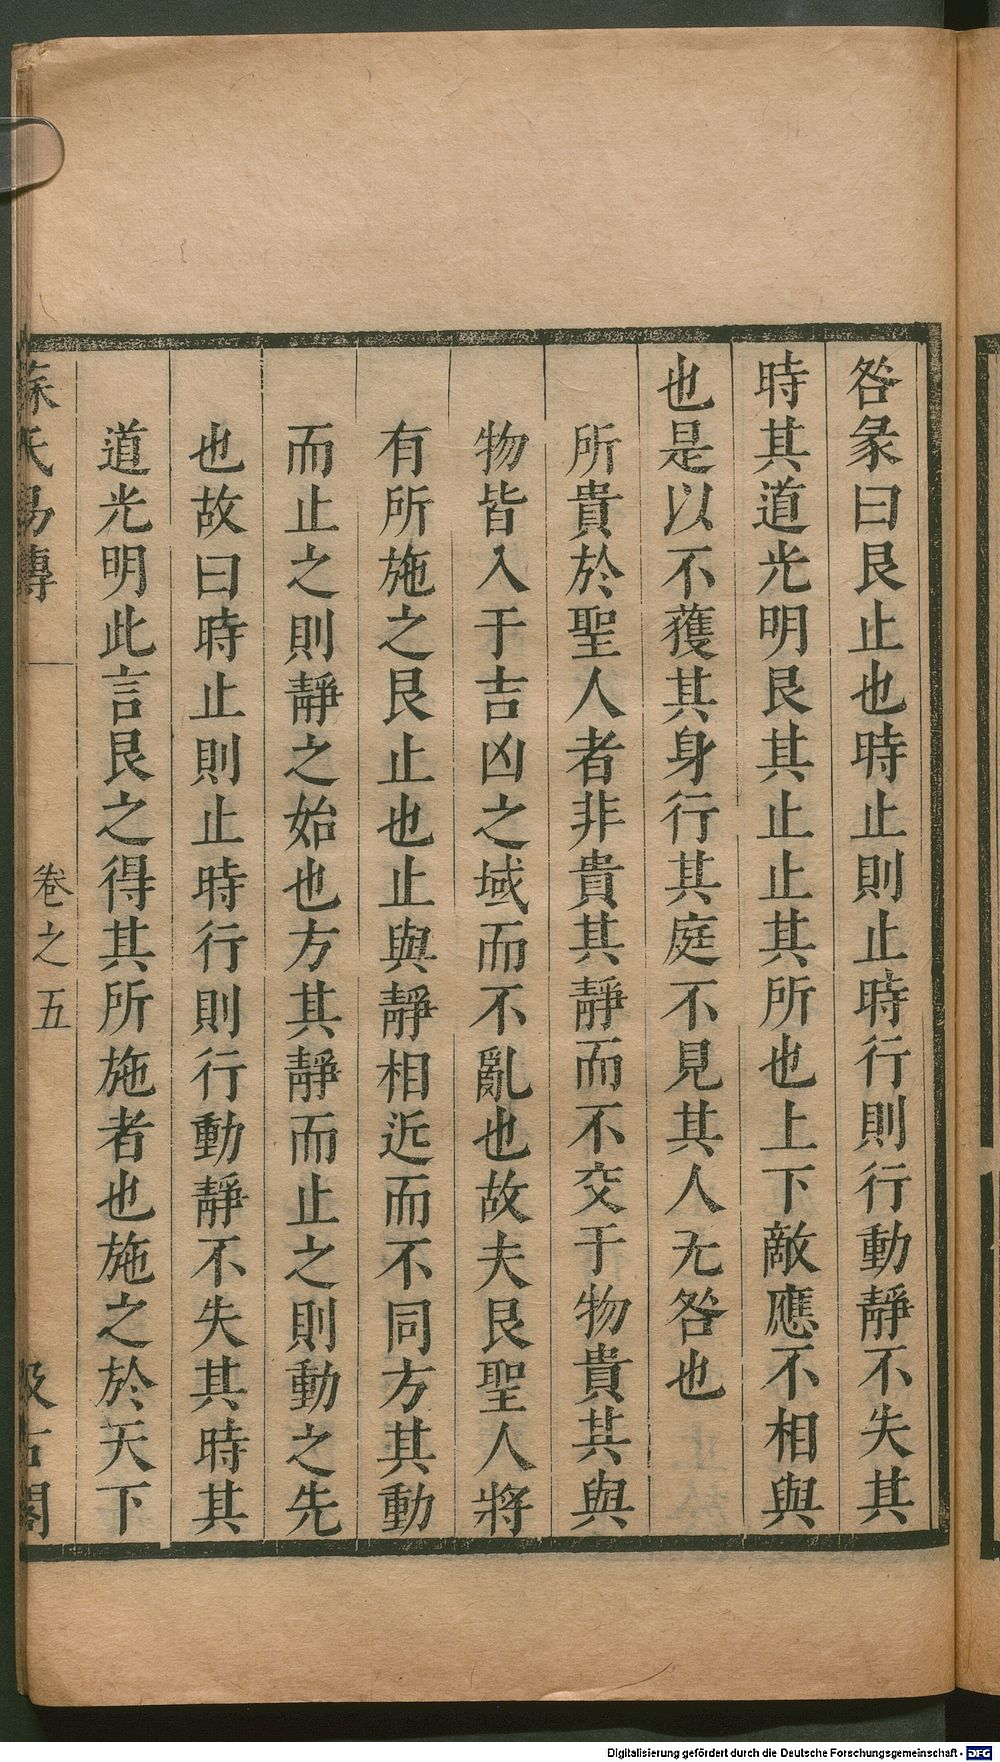 咎彖曰艮止也時止則止時行則行動靜不失其
時其道光明艮其止止其所也上下敵應不相與
也是以不獲其身行其庭不見其人无咎也
所貴於聖人者非貴其靜而不交于物貴其與
物皆入于吉凶之域而不亂也故夫艮聖人將
有所施之艮止也止與靜相近而不同方其動
而止之則靜之始也方其靜而止之則動之先
也故曰時止則止時行則行動靜不失其時其
道光明此言艮之得其所施者也施之於天下
蘇氏易傳
卷之五
汲古閣
Digitalisierung gefördert durch die Deutsche Forschungsgemeinschaft - DFG